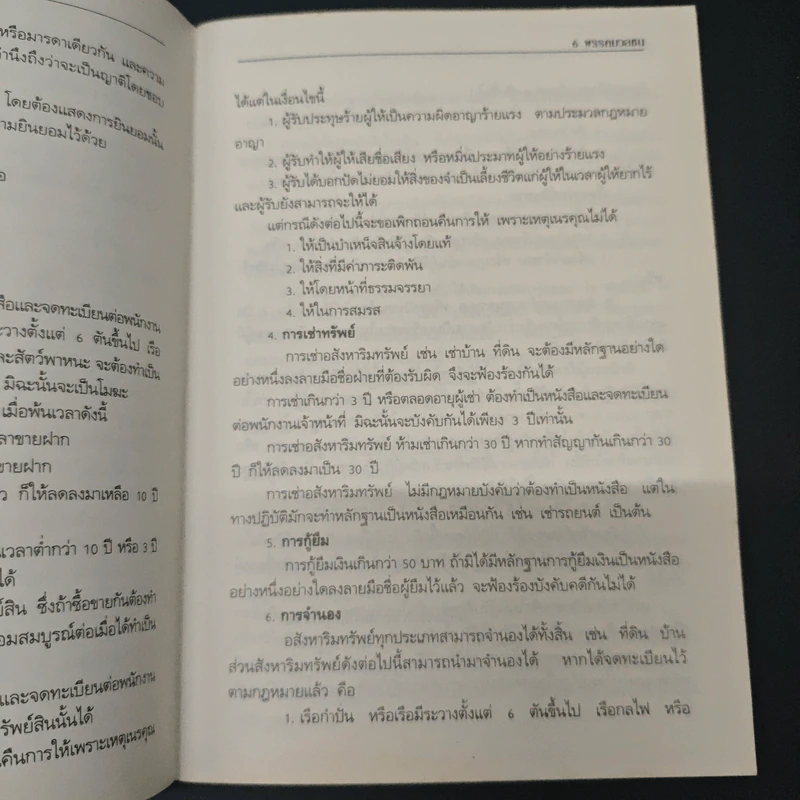 หรือมารดาเดียวกัน และความ
คำนึงถึงว่าจะเป็นญาติโดยชอบ
โดยต้องแสดงการยินยอมนั้น
ามยินยอมไว้ด้วย
สือและจดทะเบียนต่อพนักงาน
ระวางตั้งแต่ 6 ตันขึ้นไป เรือ
ละสัตว์พาหนะ จะต้องทำเป็น
มิฉะนั้นจะเป็นโมฆะ
เมื่อพ้นเวลาดังนี้
ลาขายฝาก
ขายฝาก
ว ก็ให้ลดลงมาเหลือ 10 ปี
นเวลาต่ำกว่า 10 ปี หรือ 3 ปี
ได้
ย์สิน ซึ่งถ้าซื้อขายกันต้องทำ
อมสมบูรณ์ต่อเมื่อได้ทำเป็น
และจดทะเบียนต่อพนักงาน
รัพย์สินนั้นได้
นคืนการให้เพราะเหตุเนรคุณ
6 พรรคมวลชน
ได้แต่ในเงื่อนไขนี้
1. ผู้รับประทุษร้ายผู้ให้เป็นความผิดอาญาร้ายแรง ตามประมวลกฎหมาย
อาญา
2. ผู้รับทำให้ผู้ให้เสียชื่อเสียง หรือหมิ่นประมาทผู้ให้อย่างร้ายแรง
3. ผู้รับได้บอกปัดไม่ยอมให้สิ่งของจำเป็นเลี้ยงชีวิตแก่ผู้ให้ในเวลาผู้ให้ยากไร้
และผู้รับยังสามารถจะให้ได้
แต่กรณีดังต่อไปนี้จะขอเพิกถอนคืนการให้ เพราะเหตุเนรคุณไม่ได้
1. ให้เป็นบำเหน็จสินจ้างโดยแท้
2. ให้สิ่งที่มีค่าภาระติดพัน
3. ให้โดยหน้าที่ธรรมจรรยา
4. ให้ในการสมรส
4. การเช่าทรัพย์
การเช่าอสังหาริมทรัพย์ เช่น เช่าบ้าน ที่ดิน จะต้องมีหลักฐานอย่างใด
อย่างหนึ่งลงลายมือชื่อฝ่ายที่ต้องรับผิด จึงจะฟ้องร้องกันได้
การเช่าเกินกว่า 3 ปี หรือตลอดอายุผู้เช่า ต้องทำเป็นหนังสือและจดทะเบียน
ต่อพนักงานเจ้าหน้าที่ มิฉะนั้นจะบังคับกันได้เพียง 3 ปีเท่านั้น
การเช่าอสังหาริมทรัพย์ ห้ามเช่าเกินกว่า 30 ปี หากทำสัญญากันเกินกว่า 30
ปี ก็ให้ลดลงมาเป็น 30 ปี
การเช่าอสังหาริมทรัพย์ ไม่มีกฎหมายบังคับว่าต้องทำเป็นหนังสือ แต่ใน
ทางปฏิบัติมักจะทำหลักฐานเป็นหนังสือเหมือนกัน เช่น เช่ารถยนต์ เป็นต้น
5. การกู้ยืม
การกู้ยืมเงินเกินกว่า 50 บาท ถ้ามิได้มีหลักฐานการกู้ยืมเงินเป็นหนังสือ
อย่างหนึ่งอย่างใดลงลายมือชื่อผู้ยืมไว้แล้ว จะฟ้องร้องบังคับคดีกันไม่ได้
6. การจำนอง
อสังหาริมทรัพย์ทุกประเภทสามารถจำนองได้ทั้งสิ้น เช่น ที่ดิน บ้าน
ส่วนสังหาริมทรัพย์ดังต่อไปนี้สามารถนำมาจำนองได้ หากได้จดทะเบียนไว้
ตามกฎหมายแล้ว คือ
1. เรือกำปั่น หรือเรือมีระวางตั้งแต่ 6 ตันขึ้นไป เรือกลไฟ หรือ